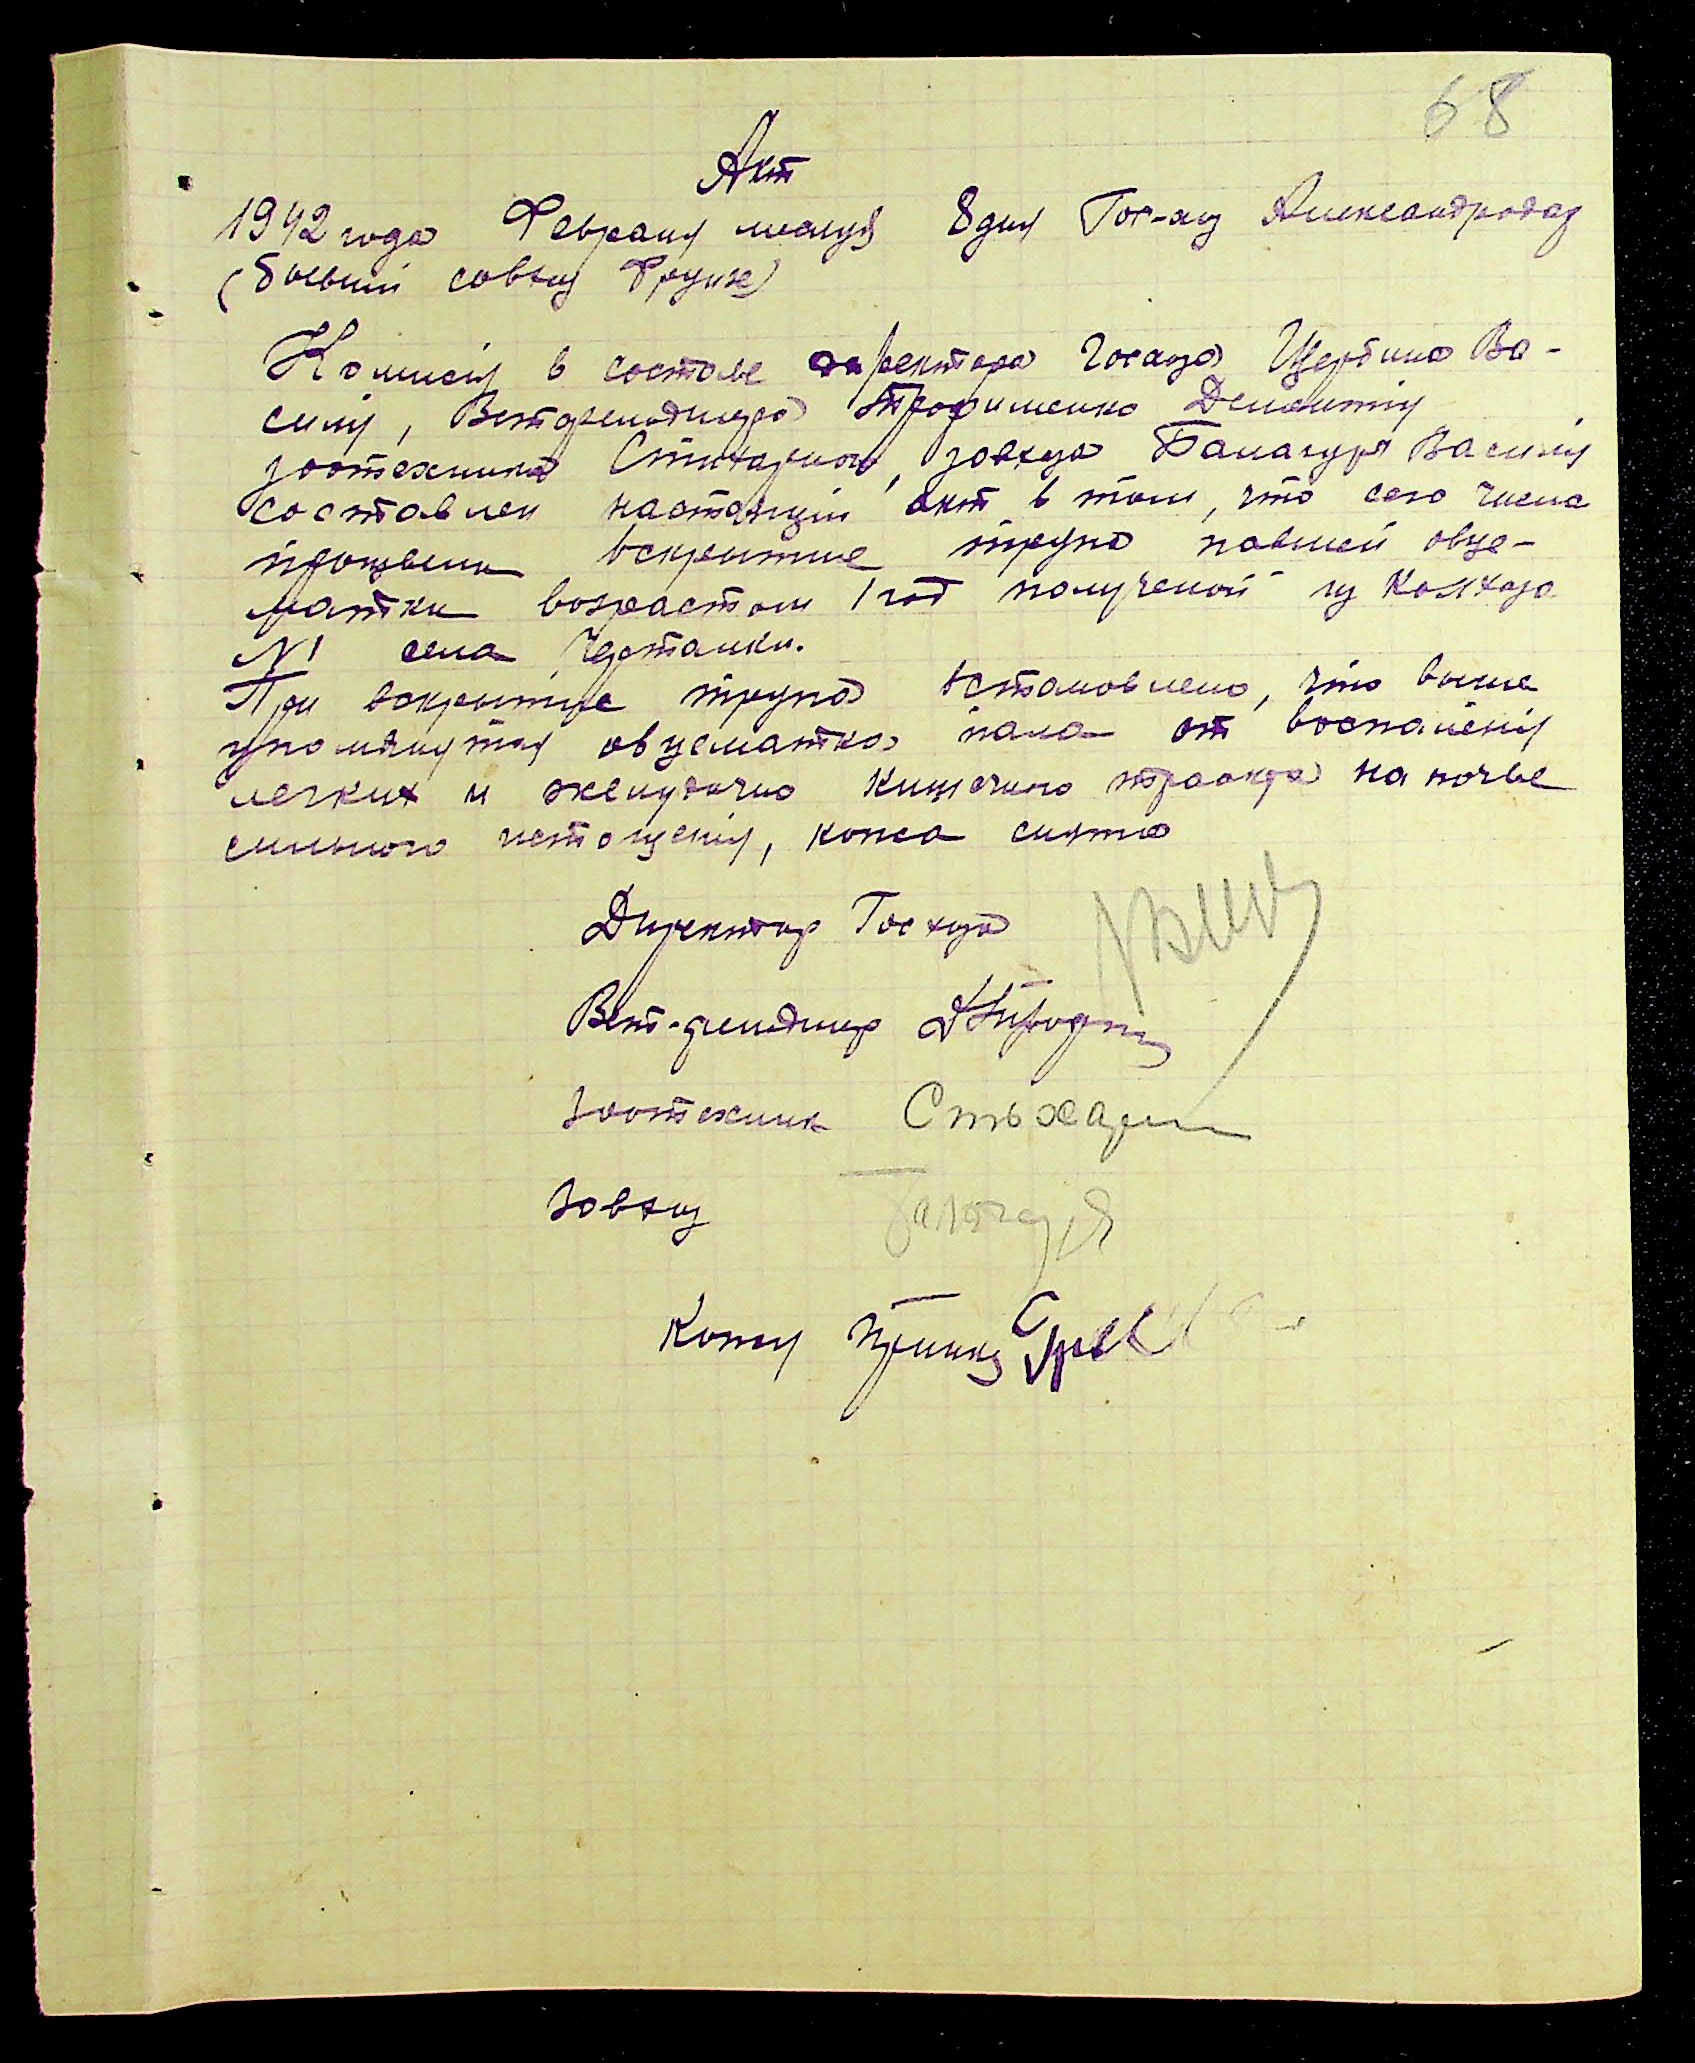 68
Акт
1942 года Февраля месяця 8 дня Гос-хоз Александродар
(бывший совхоз Фрунзе)
Комисия в составе директора Госхоза Щербина Ва-
силия, Ветфельдшера Трофименко Дементия
зоотехника Стихарного, завхоза Балагура Василия
составлен настоящий акт в том, что сего числа
произвели вскрытие трупа павшей овце-
матки возрастом 1 год полученой из Колхоза
№1 села Чертамки.
При вскрытие трупа встановлено, что выше
упомянутая овцематка пала от воспаления
легких и желудочно кишечного тракта на почве
сильного истощения, кожа снята
Директор Госхоза
Вет-фельдшер ДТрофим
Зоотехник Стьхарн
Завхоз Балагуря
Кожу принял